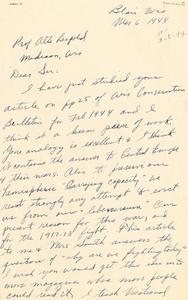 Blair Wis
Mar 6 1944
Prof Aldo Leopold
Madison, Wis
Dear Sir:
I have just studied your
article on pg 25 of Wis Conservation
Bulletin for Feb 1944 and I
think it a keen piece of work.
Your analogy is excellent & I think
it contains the answer to Central Europe
& their wars. Also to preserve our
hemisphere "Carrying capacity" we
react strongly any attempt to evict
us from our "lebensraum". Our
present reason for this war, and
for the 1917-18 fight. This article
to me & Mrs Smith answers the
question of "why are we fighting today"
& wish you would get this art. into
more magazines where more people
could read it. I teach Vocational